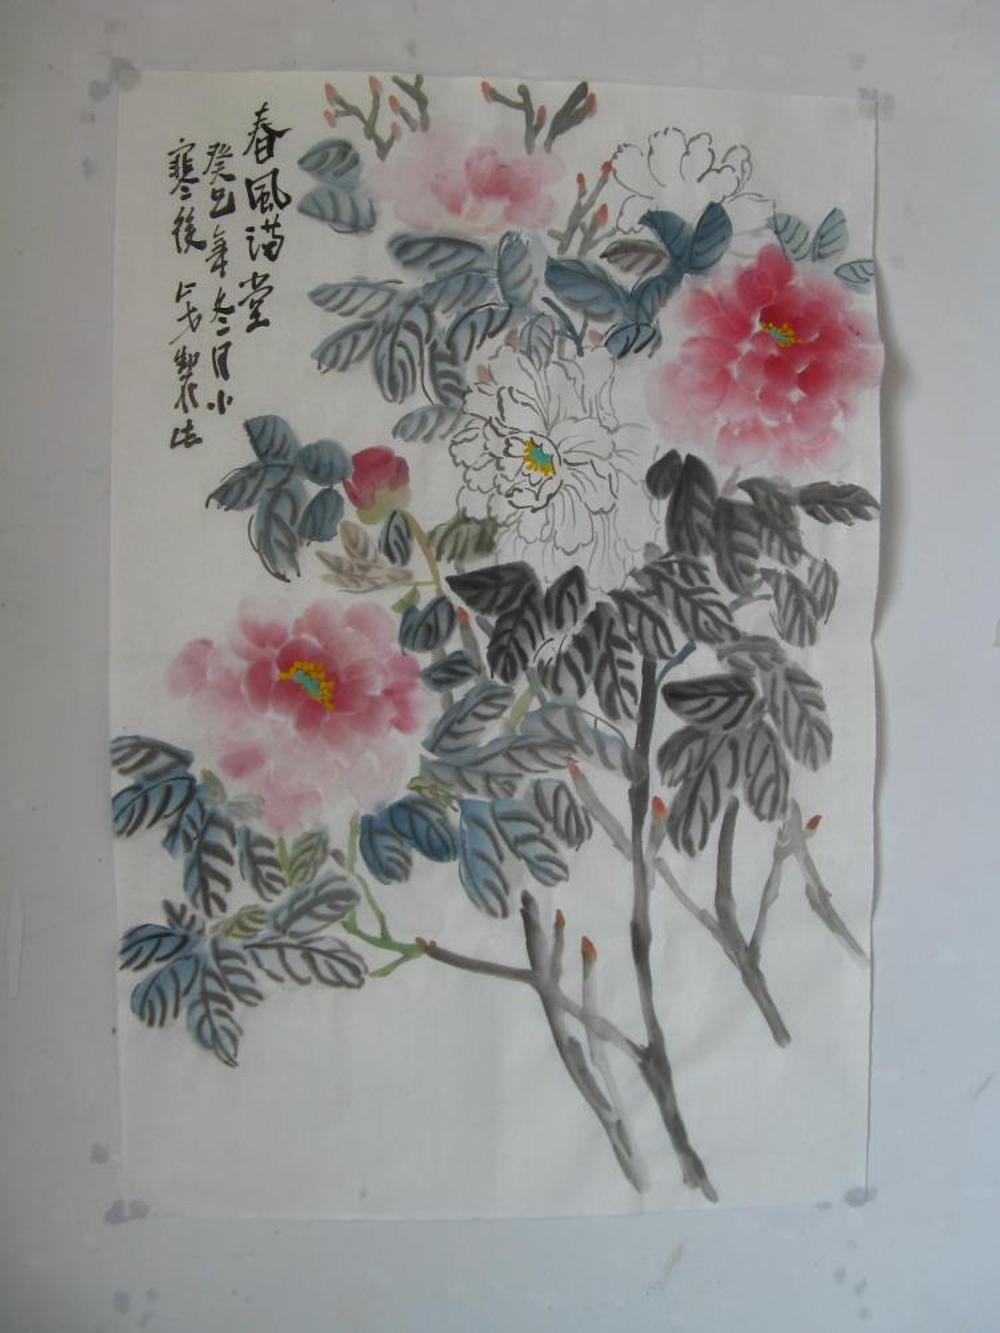 春風满堂
癸巳年冬二月小
寒後